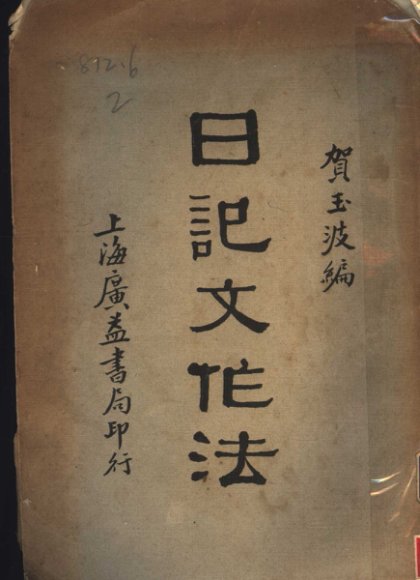 賀玉波編
日記文作法
上海廣益書局印行
812.6
2